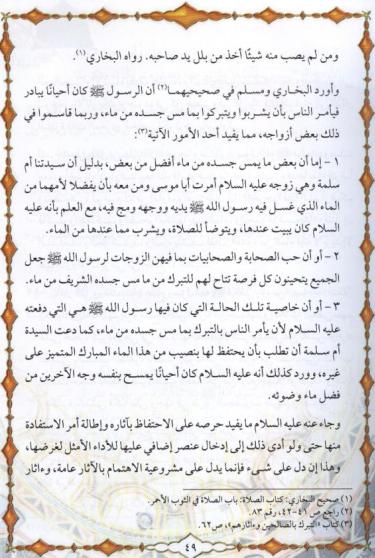 ومن لم يصب منه شيئًا أخذ من بلل يد صاحبه. رواه البخاري(١).
وأورد البخاري ومسلم في صحيحيهما(٢) أن الرسول ﷺ كان أحيانًا يبادر
فيأمر الناس بأن يشربوا ويتبركوا بما مس جسده من ماء، وربما قاسموا في
ذلك بعض أزواجه، مما يفيد أحد الأمور الآتية(٣):
١ - إما أن بعض ما يمس جسده من ماء أفضل من بعض، بدليل أن سيدتنا أم
سلمة وهي زوجه عليه السلام أمرت أبا موسى ومن معه بأن يفضلا لأمهما من
الماء الذي غسل فيه رسول الله ﷺ يديه ووجهه ومج فيه، مع العلم بأنه عليه
السلام كان يبيت عندها، ويتوضأ للصلاة، ويشرب مما عندها من الماء.
٢ - أو أن حب الصحابة والصحابيات بما فيهن الزوجات لرسول الله ﷺ جعل
الجميع يتحينون كل فرصة تتاح لهم للتبرك من ما مس جسده الشريف من ماء.
٣ - أو أن خاصية تلك الحالة التي كان فيها رسول الله ﷺ هي التي دفعته
عليه السلام لأن يأمر الناس بالتبرك بما مس جسده من ماء، كما دعت السيدة
أم سلمة أن تطلب بأن يحتفظ لها بنصيب من هذا الماء المبارك المتميز على
غيره، وورد كذلك أنه عليه السلام كان أحيانًا يمسح بنفسه وجه الآخرين من
فضل ماء وضوئه.
وجاء عنه عليه السلام ما يفيد حرصه على الاحتفاظ بآثاره وإطالة أمر الاستفادة
منها حتى ولو أدى ذلك إلى إدخال عنصر إضافي عليها للأداء الأمثل لغرضها،
وهذا إن دل على شيء فإنما يدل على مشروعية الاهتمام بالآثار عامة، وءاثار
(١) صحيح البخاري: كتاب الصلاة: باب الصلاة في الثوب الأحمر.
(٢) راجع ص ٤١-٤٢، رقم ٨٣.
(٣) كتاب «التبرك بالصالحين وءاثارهم»، ص٦٢.
٤٩